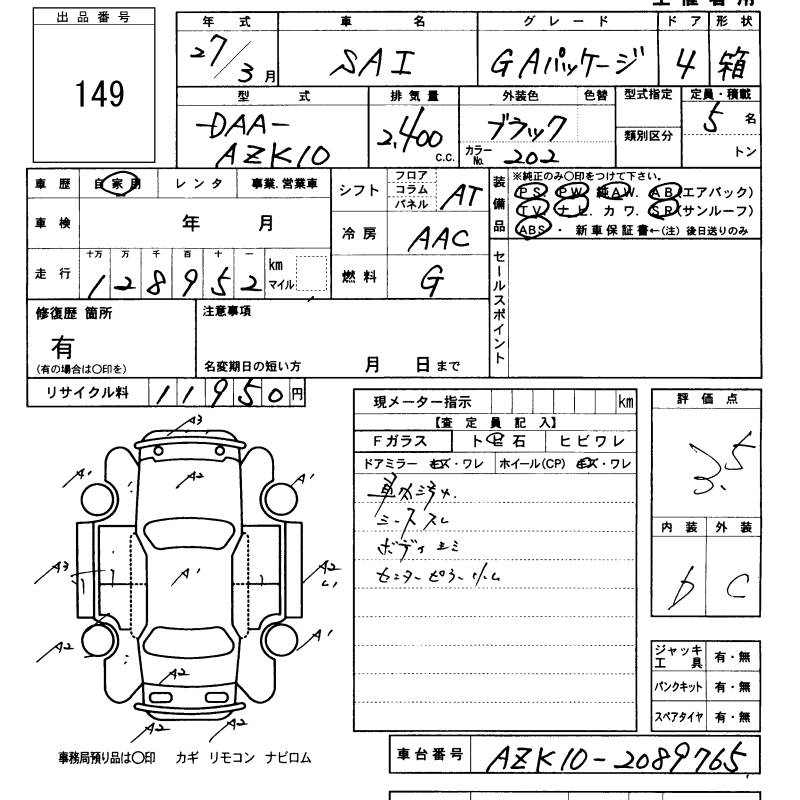 出品番号
149
年式 車名 グレード ドア 形状
27/3月 SAI GAパッケージ 4 箱
型式 排気量 外装色 色替 型式指定 定員・積載
-DAA- 2,400 ブラック 5名
AZK10 c.c. カラーNo. 202 類別区分 トン
車歴 自家用 レンタ 事業.営業車
シフト フロア コラム パネル AT
装備品 ※純正のみ〇印をつけて下さい。
PS PW 純AW. AB(エアバック)
TV ナビ. カワ. SR(サンルーフ)
ABS ・ 新車保証書←(注) 後日送りのみ
車検 年 月
冷房 AAC
走行 十万 万 千 百 十 一
128952 km マイル
燃料 G
セールスポイント
修復歴 箇所 注意事項
有
(有の場合は〇印を) 名変期日の短い方 月 日まで
リサイクル料 11950円
現メーター指示 km
【査定員記入】
Fガラス ト 石 ヒビワレ
ドアミラー キズ・ワレ ホイール(CP) キズ・ワレ
シーススレ
評価点
3.5
内装 外装
D C
A3
A1 A2 A1
A3 A1 A2
A2 A1
A2
A2 A2
ジャッキ工具 有・無
パンクキット 有・無
スペアタイヤ 有・無
事務局預り品は〇印 カギ リモコン ナビロム
車台番号 AZK10-2089765